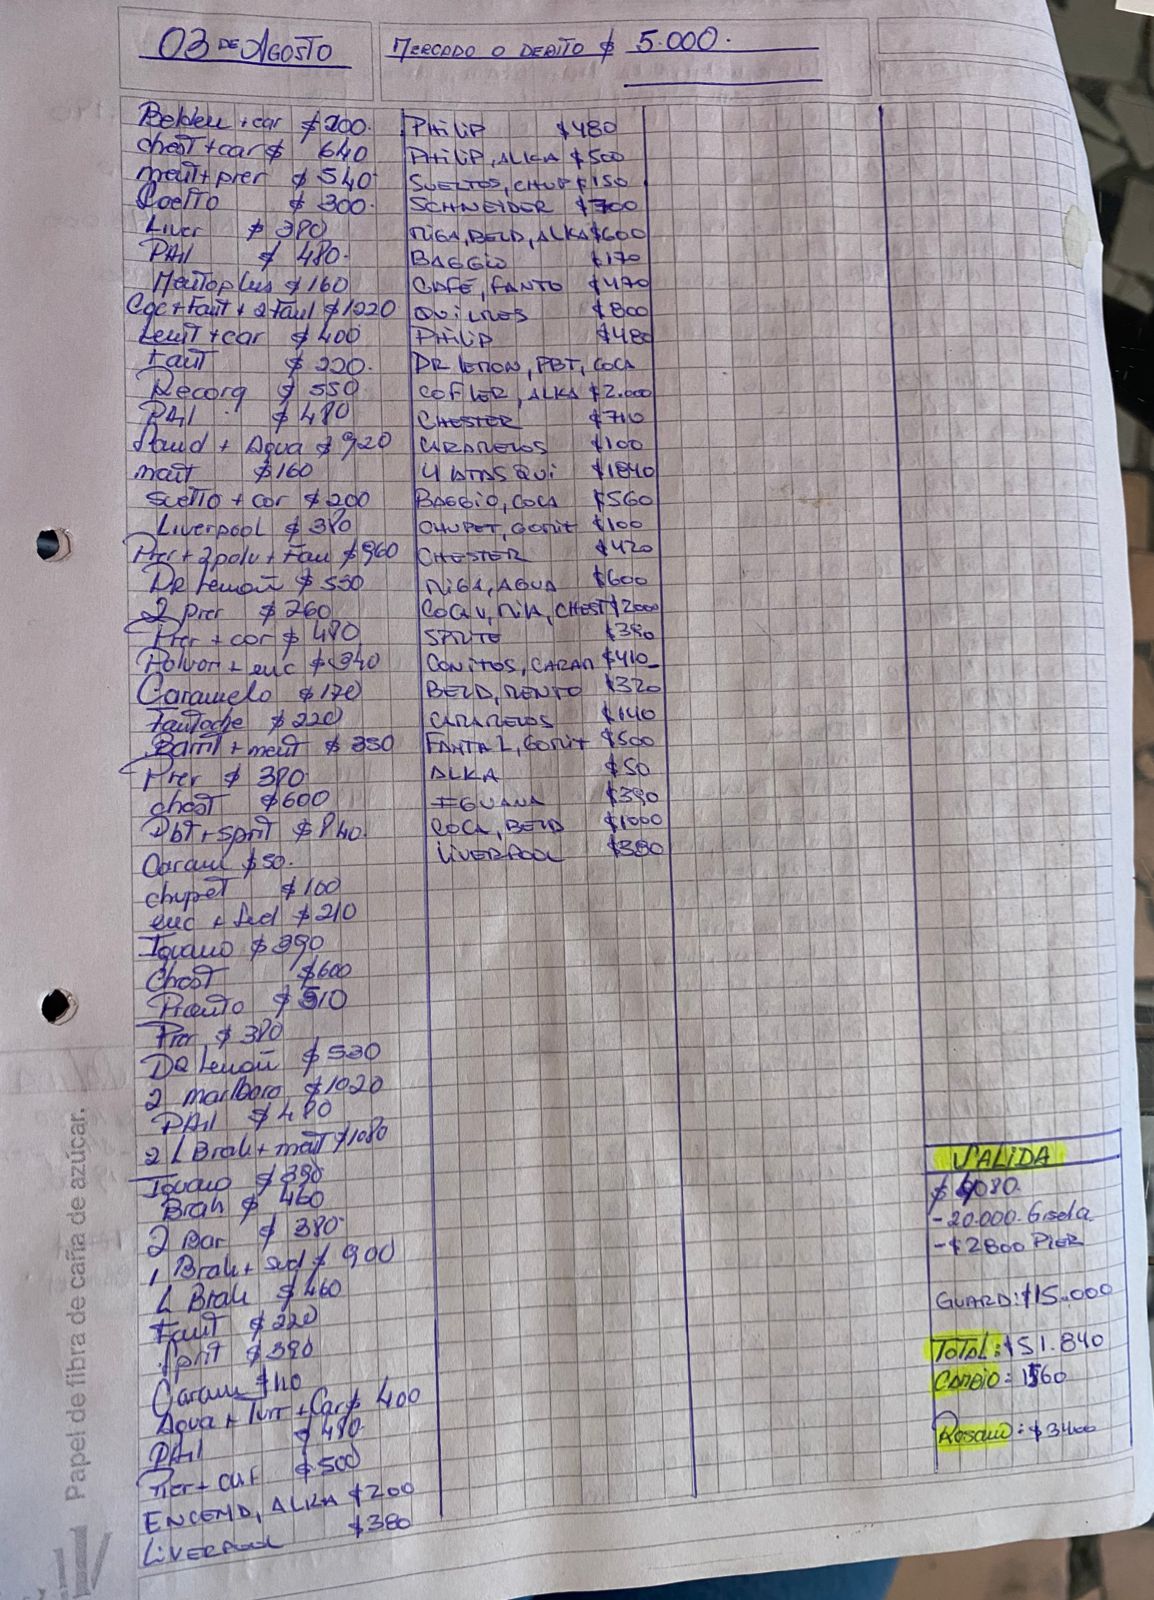 03 DE AGOSTO
MERCADO O DEBITO $ 5.000.
Belden + car $200.
chest + car $ 640
ment + pier $ 540
$ 300.
Liver $ 380
PAll $ 480.
Mentoplus $160
Coc + Fant + 2 Faul $1220
+ car $ 400
Fant $ 220.
Recorg $ 550
PAll $ 480
+ Agua $ 920
ment $160
suelto + car $ 200
Liverpool $ 380
Pier + 2 polv + Fan $960
DR Lemon $ 530
2 Pier $ 260
Pier + car $ 480
Polvor + enc $ 340
Caramelo $170
Fantoche $ 220
Barrit + ment $ 350
Pier $ 380
chest $600
Pbt + sprit $ 840.
Caram $50.
chupet $ 100
enc + sed $ 210
Iguana $ 390
Chest $600
Pronto $ 510
Pier $ 380
DR Lemon $ 530
2 marlboro $1020
PAll $ 480
2 L Brah + mant $1080
Iguana $ 390
Brah $ 460
2 Bar $ 380
1 Brah + sed $ 900
L Brah $ 460
Fant $ 220
Sprit $ 390
Caram $110
Agua + Turr + Car $ 400
PAll $ 480.
Pier + caf $ 500
ENCEND, ALKA $200
LIVERPOOL $380
PHILIP $480
PHILIP, ALKA $500
SUELTOS, CHUP $150
SCHNEIDER $700
MIGA, BELD, ALKA $600
BAGGIO $170
CAFÉ, FANTO $470
QUILMES $800
PHILIP $480
DR LEMON, PBT, COCA
COFLER, ALKA $2.000
CHESTER $710
CARAMELOS $100
4 LATAS QUI $1840
BAGGIO, COCA $560
CHUPET, GOMIT $100
CHESTER $420
MIGA, AGUA $600
COCA V, MIA, CHEST $2000
SPRITE $390
CONITOS, CARAM $410
BELD, MENTO $320
CARAMELOS $140
FANTA L, GOMIT $500
ALKA $50
IGUANA $390
COCA, BELD $1000
LIVERPOOL $380
SALIDA
$ 4080.
- 20.000. Gisela
- $2800 PIER
GUARD: $15.000
TOTAL: $51.840
CAMBIO: 1560
Rosario: $3400
Papel de fibra de caña de azúcar.